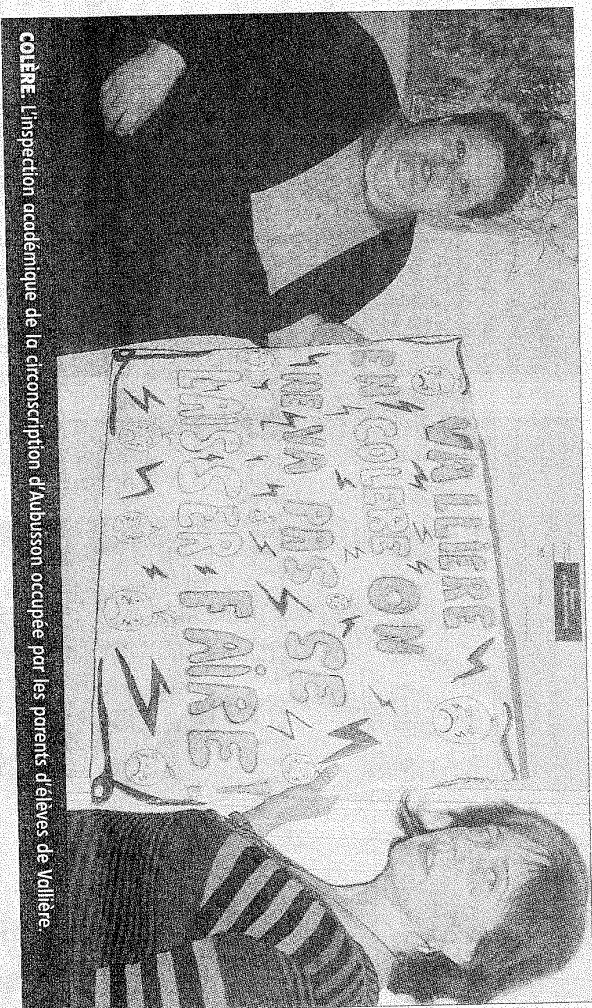 VALLIÈRE
EN COLERE ON
NE VA PAS SE
LAISSER FAIRE!
COLÈRE. L'inspection académique de la circonscription d'Aubusson occupée par les parents d'élèves de Vallière.